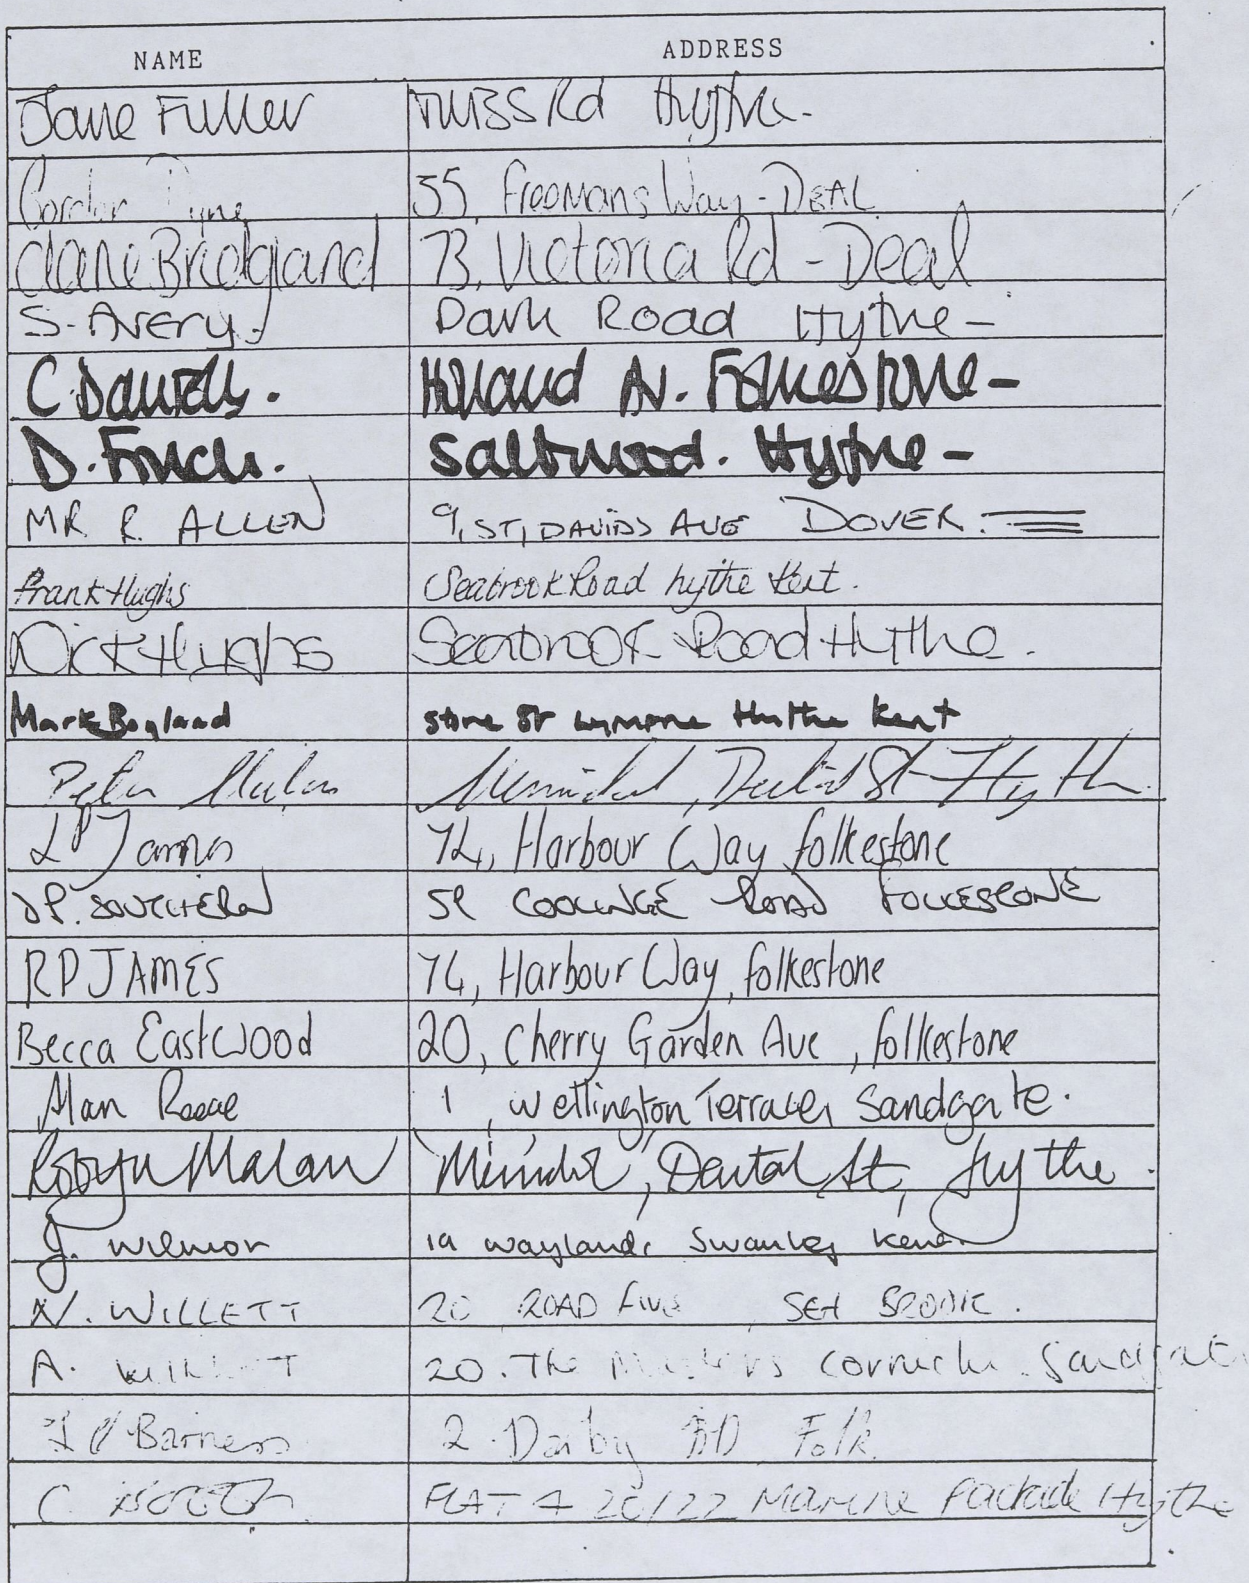 NAME ADDRESS
Jane Fuller Rd Hythe.
35, Freemans Way - DEAL
Claire Bridgland 73, Victoria Rd - Deal
S. Avery Park Road Hythe -
C Daniels. Holland Av. Folkestone -
D. Finch. Saltwood. Hythe -
MR. R. ALLEN 9, ST, DAVIDS AVE DOVER.
Frank Hughs Seabrook Road hythe Kent.
Nick Hughs Seabrook Road Hythe.
Mark Boyland stone St Lympne Hythe Kent
Peter St Hythe
James 74, Harbour Way folkestone
JP. SOUTHERN COOLINGE ROAD FOLKESTONE
RP JAMES 74, Harbour Way, folkestone
Becca Eastwood 20, Cherry Garden Ave, folkestone
Alan 1, Wellington Terrace, Sandgate.
Robyn Malan Dental St, Hythe.
J. Wilmor 19 Waylands Swanley Kent.
N. WILLETT 20 ROAD FIVE, SEA BROOK.
A. 20. The Corniche. Sandgate
Barness 2 Darby RD Folk.
C. FLAT 4 20/22 Marine Parade Hythe